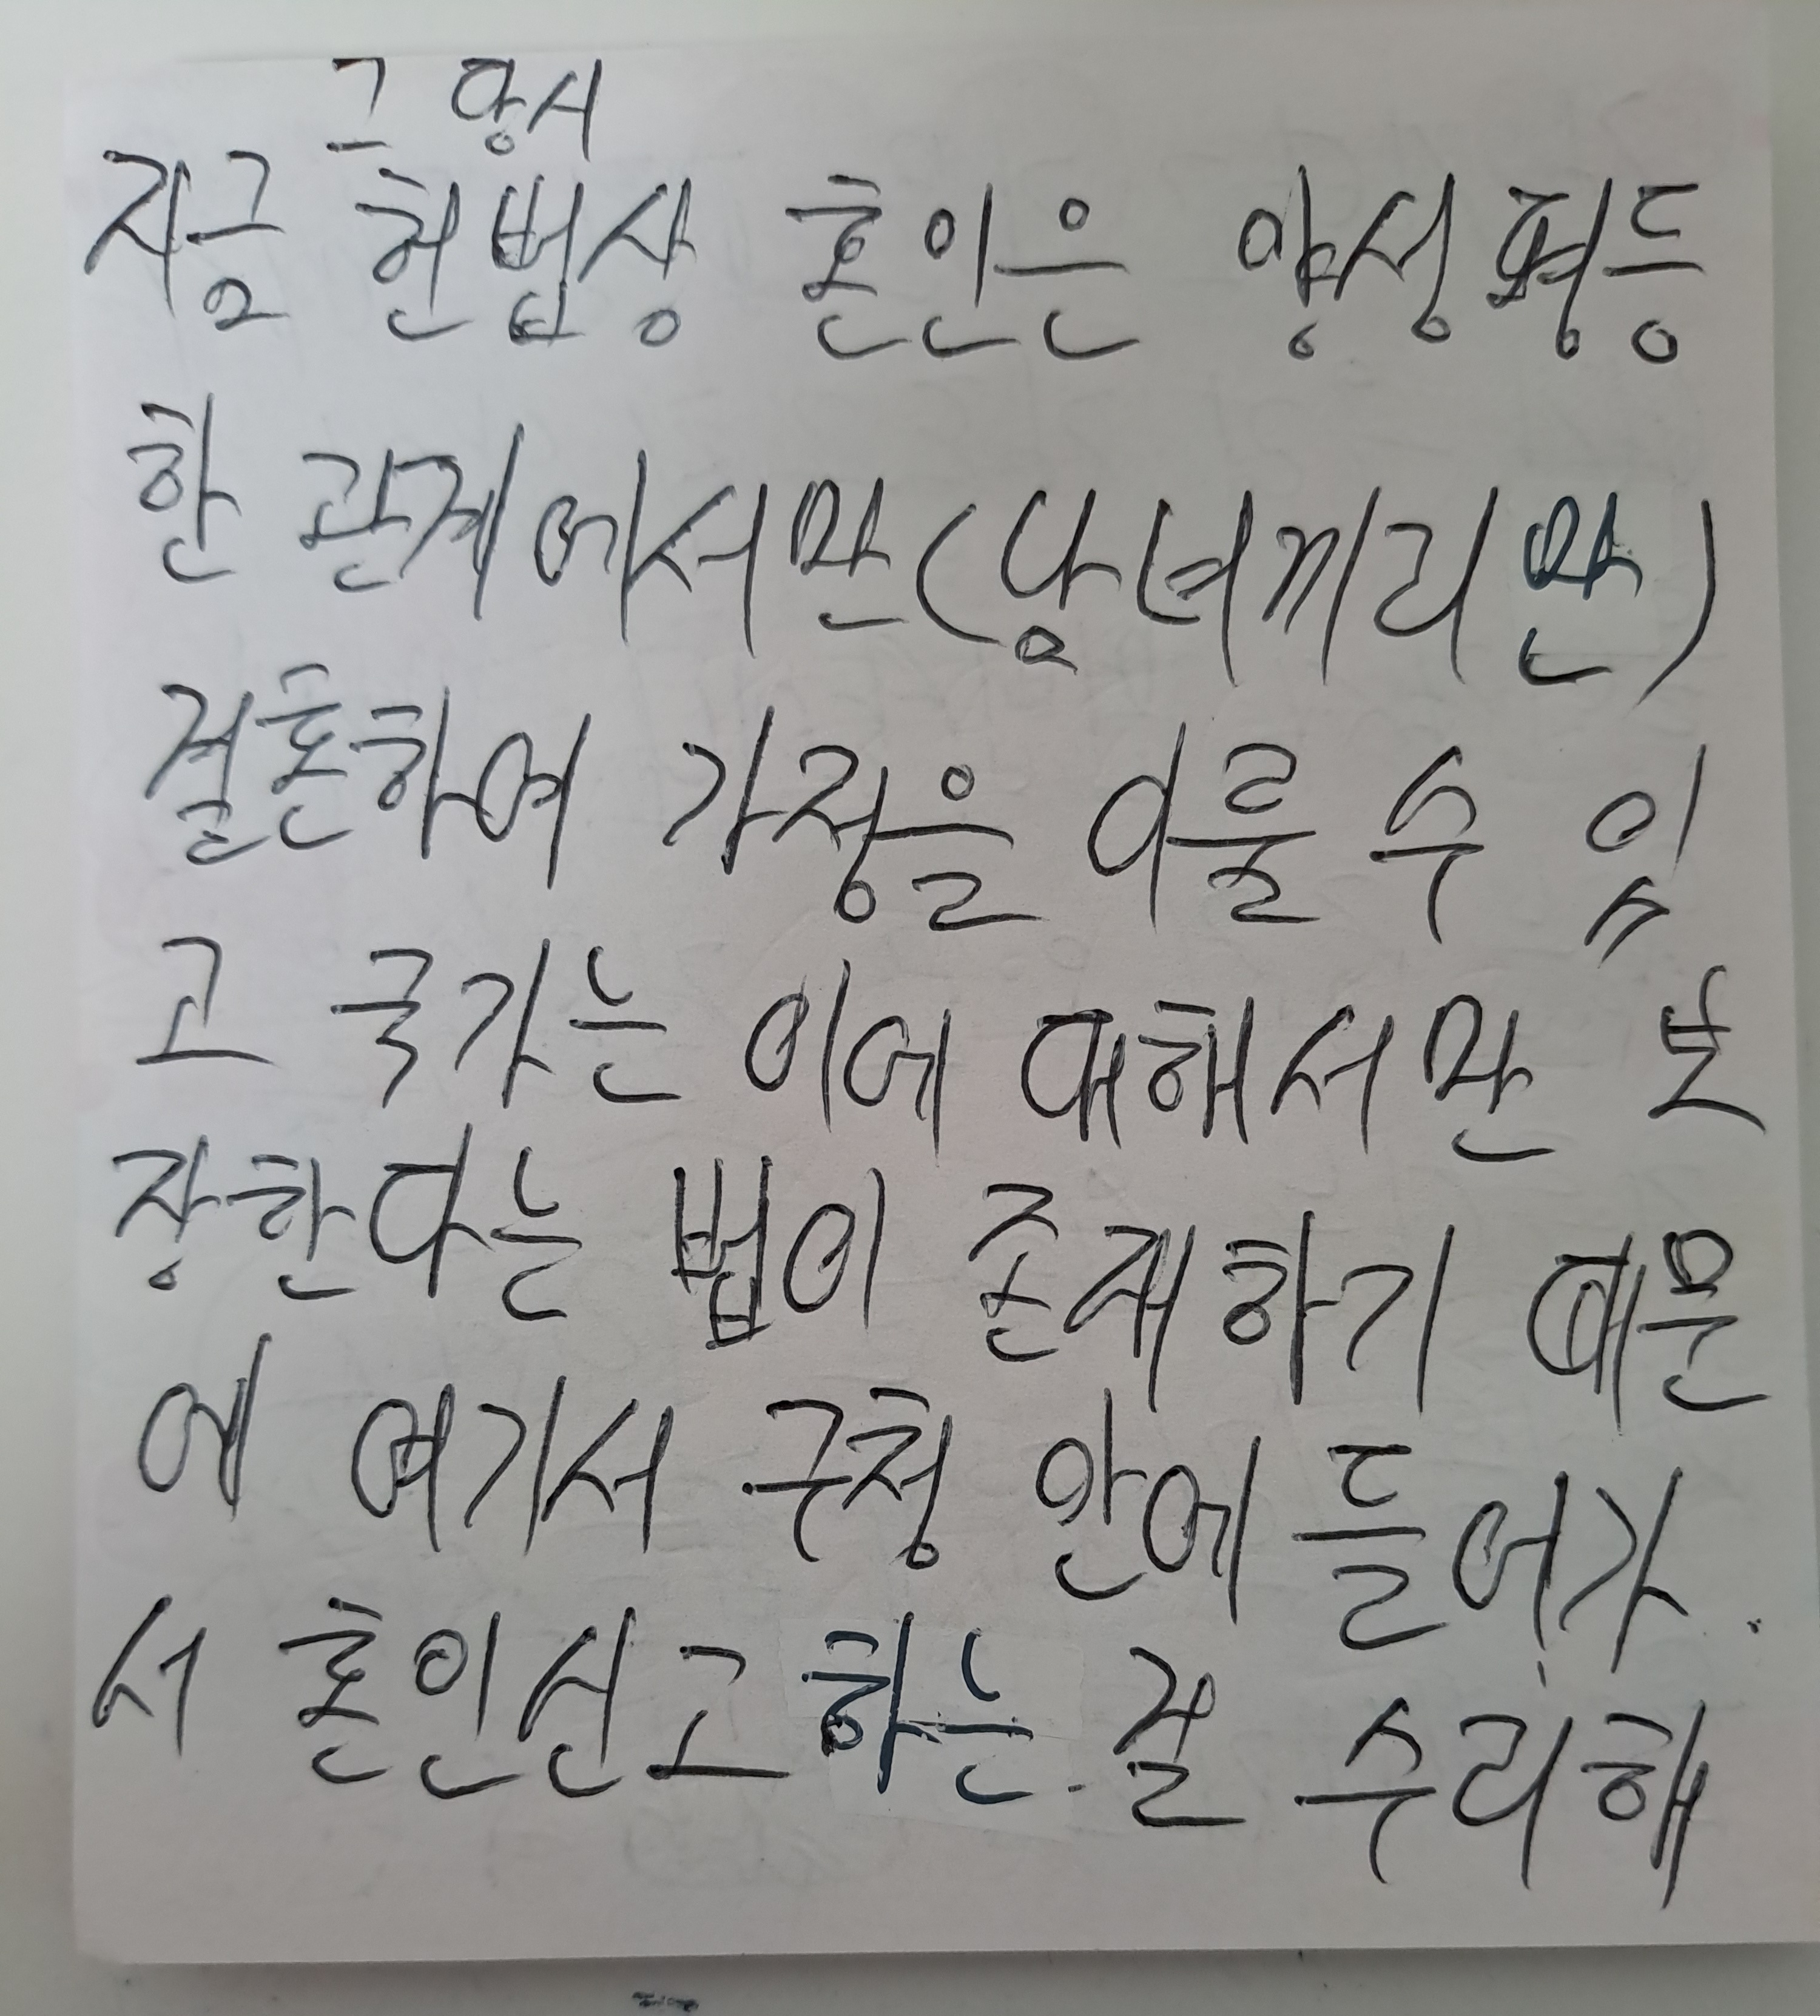 그 당시
지금 헌법상 혼인은 양성평등
한 관계에서만(남녀끼리만)
결혼하여 가정을 이룰 수 있
고 국가는 이에 대해서만 보
장한다는 법이 존재하기 때문
에 여기서 구청 안에 들어가
서 혼인신고하는 걸 수리해